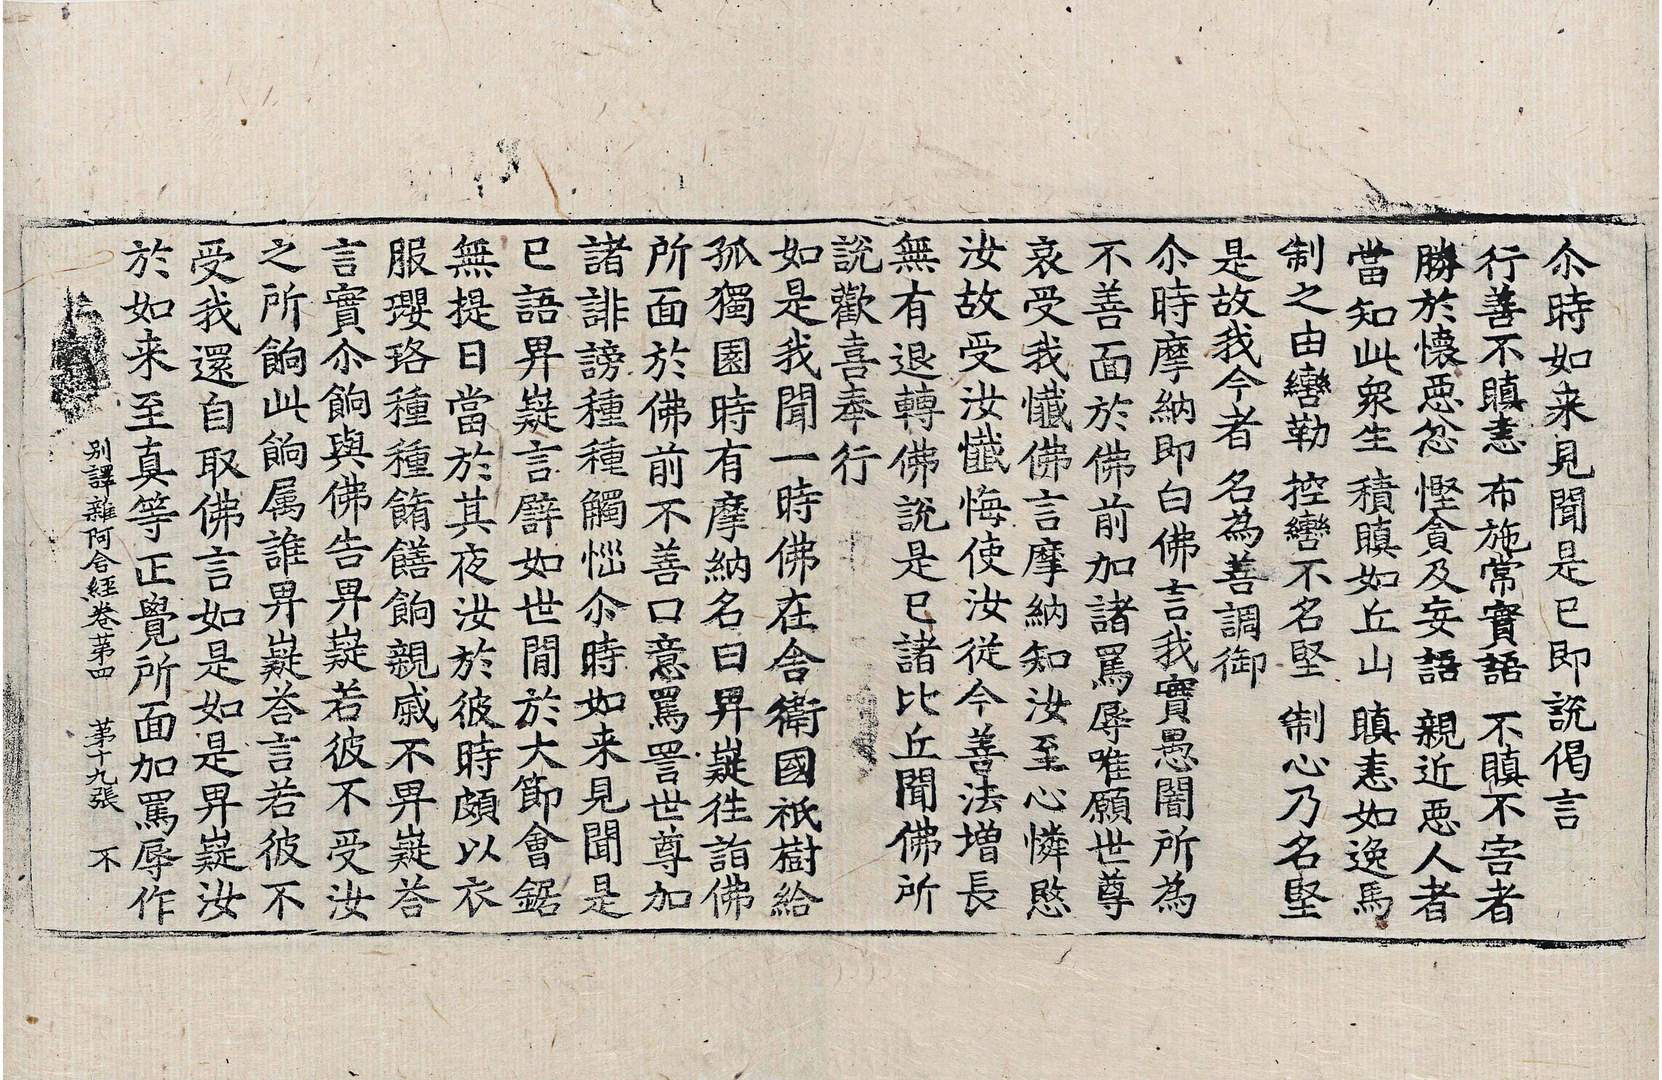 尒時如来見聞是已即說偈言
行善不瞋恚 布施常實語 不瞋不害者
勝於懷惡忿 慳貪及妄語 親近惡人者
當知此衆生 積瞋如丘山 瞋恚如逸馬
制之由轡勒 控轡不名堅 制心乃名堅
是故我今者 名為善調御
尒時摩納即白佛言我實愚闇所為
不善面於佛前加諸罵辱唯願世尊
哀受我懺佛言摩納知汝至心憐愍
汝故受汝懺悔使汝從今善法増長
無有退轉佛說是已諸比丘聞佛所
說歡喜奉行
如是我聞一時佛在舍衛國祇樹給
孤獨園時有摩納名曰畀嶷往詣佛
所面於佛前不善口意罵詈世尊加
諸誹謗種種觸惱尒時如来見聞是
已語畀嶷言譬如世閒於大節會鋸
無提日當於其夜汝於彼時頗以衣
服瓔珞種種餚饍餉親戚不畀嶷荅
言實尒餉與佛告畀嶷若彼不受汝
之所餉此餉属誰畀嶷荅言若彼不
受我還自取佛言如是如是畀嶷汝
於如来至真等正覺所面加罵辱作
別譯雜阿含經卷第四 第十九張 不